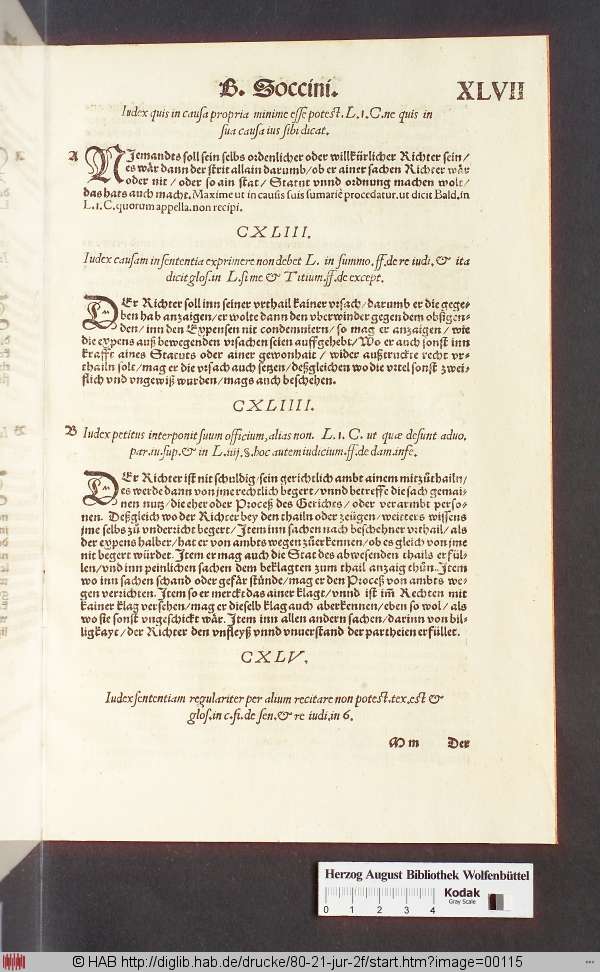 B. Soccini. XLVII
Iudex quis in causa propria minime esse potest. L. 1. C. ne quis in
sua causa ius sibi dicat.
A NJemandts soll sein selbs ordenlicher oder willkürlicher Richter sein/
es wår dann der strit allain darumb/ ob er ainer sachen Richter wår
oder nit/ oder so ain stat/ Statut vnnd ordnung machen wolt/
das hats auch macht. Maxime ut in causis suis sumariè procedatur. ut dicit Bald. in
L. 1. C. quorum appella. non recipi.
CXLIII.
Iudex causam in sententia exprimere non debet L. in summo. ff. de re iudi. & ita
dicit glos. in L. si me & Titium. ff. de except.
DEr Richter soll inn seiner vrthail kainer vrsach/ darumb er die gege-
ben hab anzaigen/ er wolte dann den vberwinder gegen dem obsigen-
den/ inn den Expensen nit condemniern/ so mag er anzaigen/ wie
die expens auß bewegenden vrsachen seien auffgehebt/ Wo er auch sonst inn
krafft aines Statuts oder ainer gewonhait/ wider außtruckte recht vr-
thailn solt/ mag er die vrsach auch setzen/ deßgleichen wo die vrtel sonst zwei-
flich vnd vngewiß wurden/ mags auch beschehen.
CXLIIII.
B Iudex petitus interponit suum officium, alias non. L. 1. C. ut quæ desunt aduo.
par. iu. sup. & in L. iiij. §. hoc autem iudicium. ff. de dam. infe.
DEr Richter ist nit schuldig/ sein gerichtlich ambt ainem mitzůthailn/
es werde dann von jme rechtlich begert/ vnnd betreffe die sach gemai-
nen nutz/ die eher oder Proceß des Gerichts/ oder verarmbt perso-
nen. Deßgleich wo der Richter bey den thailn oder zeügen/ weitters wissens
jme selbs zů vnderricht begert/ Item inn sachen nach beschehner vrthail/ als
der expens halber/ hat er von ambts wegen zůerkennen/ ob es gleich von jme
nit begert würdet. Item er mag auch die Stat des abwesenden thails erfül-
len/ vnd inn peinlichen sachen dem beklagten zum thail anzaig thůn. Item
wo inn sachen schand oder gefår stůnde/ mag er den Proceß von ambts we-
gen verrichten. Item so er merckt das ainer klagt/ vnnd ist im̃ Rechten mit
kainer klag versehen/ mag er dieselb klag auch aberkennen/ eben so wol/ als
wo sie sonst vngeschickt wår. Item inn allen andern sachen/ darinn von bil-
ligkayt/ der Richter den vnfleyß vnnd vnuerstand der partheien erfüllet.
CXLV.
Iudex sententiam regulariter per alium recitare non potest. tex. est &
glos. in c. fi. de sen. & re iudi. in 6.
M m Der
Herzog August Bibliothek Wolfenbüttel
0 1 2 3 4
Kodak
Gray Scale
© HAB http://diglib.hab.de/drucke/80-21-jur-2f/start.htm?image=00115